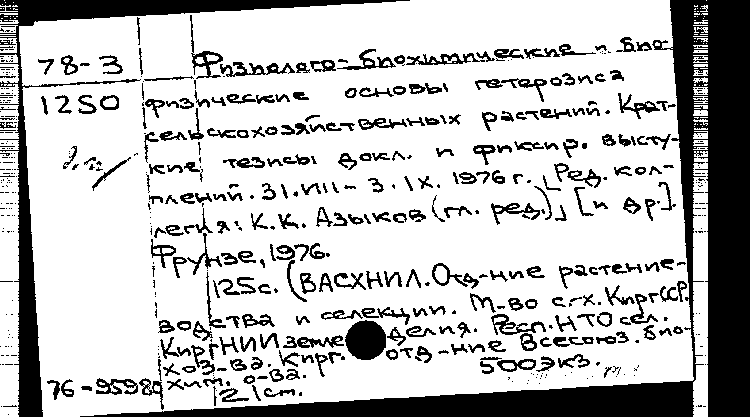 78-3 Физиолого-биохимические и био-
1250 физические основы гетерозиса
сельскохозяйственных растений. Крат-
кие тезисы докл. и фиксир. высту-
плений. 31.VIII - 3.IX. 1976 г. [Ред. кол-
легия: К.К. Азыков (гл. ред.)] [и др.].
Фрунзе, 1976.
125с. (ВАСХНИЛ. Отд-ние растение-
водства и селекции. М-во с.-х. КиргССР.
КиргНИИ земледелия. Респ. НТО сел.
хоз-ва. Кирг. отд-ние Всесоюз. био-
хим. о-ва. 500экз.
76-95980 21 см.